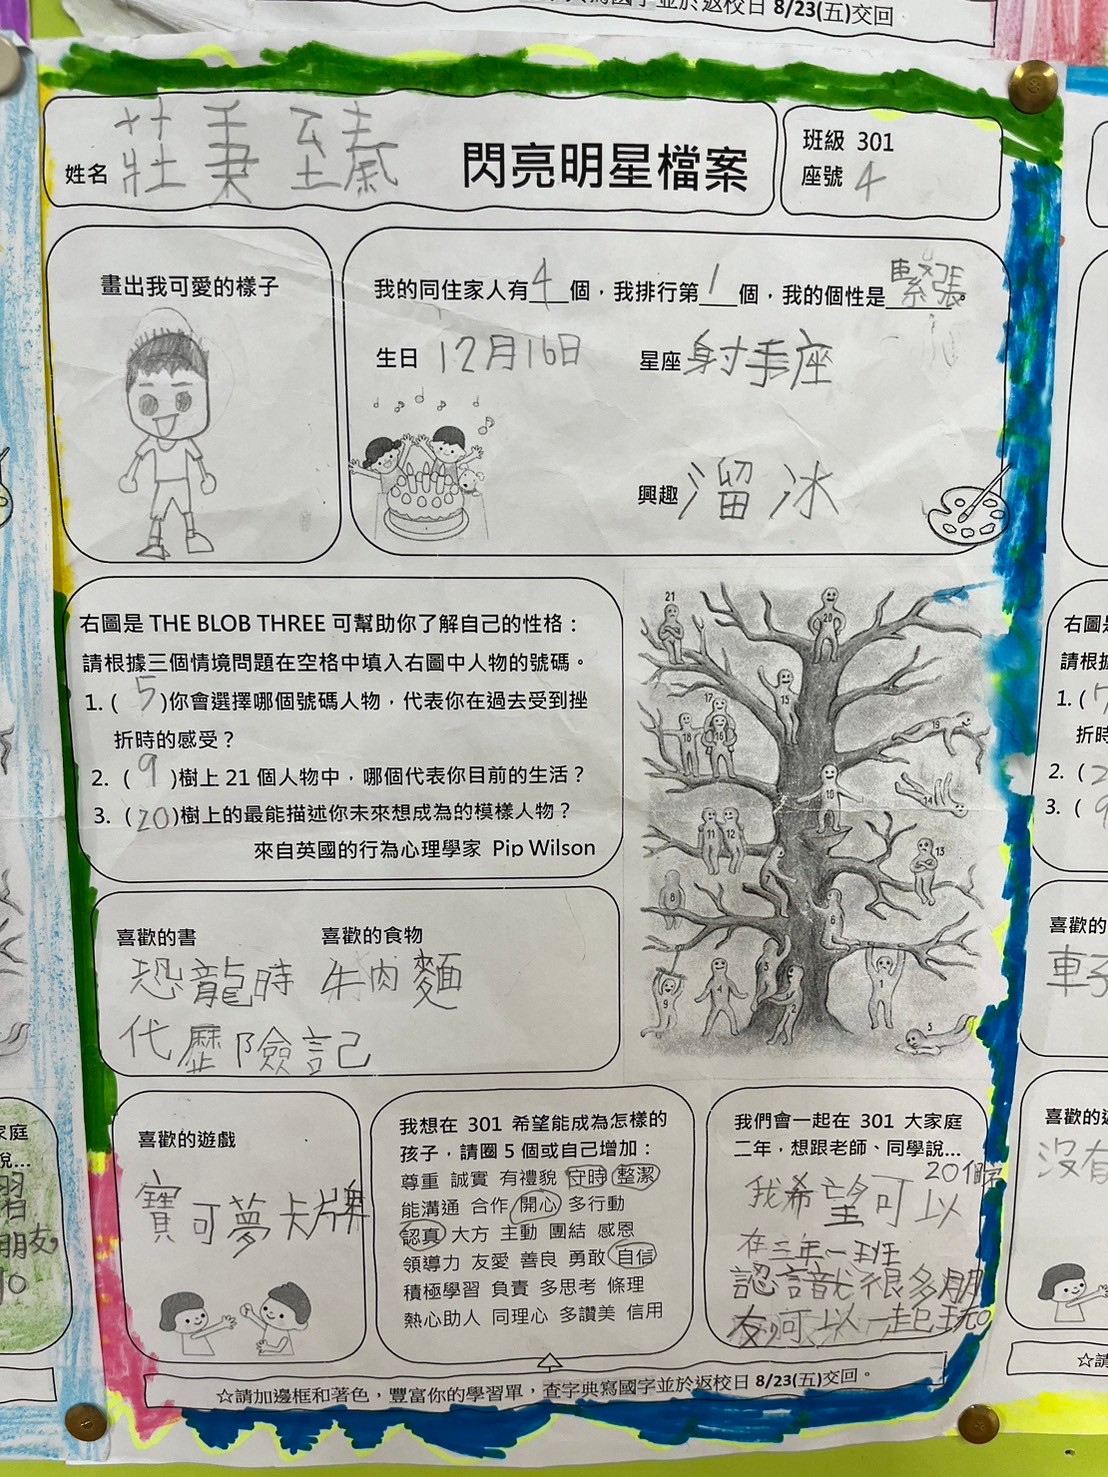 寫國字並於返校日 8/23(五)交回
姓名 莊秉臻 閃亮明星檔案
班級 301
座號 4
畫出我可愛的樣子
我的同住家人有 4 個,我排行第 1 個,我的個性是 緊張。
生日 12月16日 星座 射手座
興趣 溜冰
右圖是 THE BLOB THREE 可幫助你了解自己的性格:
請根據三個情境問題在空格中填入右圖中人物的號碼。
1. ( 5 )你會選擇哪個號碼人物,代表你在過去受到挫
折時的感受?
2. ( 9 )樹上 21 個人物中,哪個代表你目前的生活?
3. (20)樹上的最能描述你未來想成為的模樣人物?
來自英國的行為心理學家 Pip Wilson
21
20
15
17
18 16
19
10
14
11 12
13
8
6
3
9 4 2 1
5
喜歡的書 喜歡的食物
恐龍時 牛肉麵
代歷險記
喜歡的遊戲
寶可夢卡牌
我想在 301 希望能成為怎樣的
孩子,請圈 5 個或自己增加:
尊重 誠實 有禮貌 守時 整潔
能溝通 合作 開心 多行動
認真 大方 主動 團結 感恩
領導力 友愛 善良 勇敢 自信
積極學習 負責 多思考 條理
熱心助人 同理心 多讚美 信用
我們會一起在 301 大家庭
二年,想跟老師、同學說…
20個字
我希望可以
在三年一班
認識很多朋
友,可以一起玩。
☆請加邊框和著色,豐富你的學習單,查字典寫國字並於返校日 8/23(五)交回。
右圖是
請根據
1. (
折時
2. (
3. (
喜歡的
車子
喜歡的遊
沒有
☆請
家庭
說…
習
朋友,